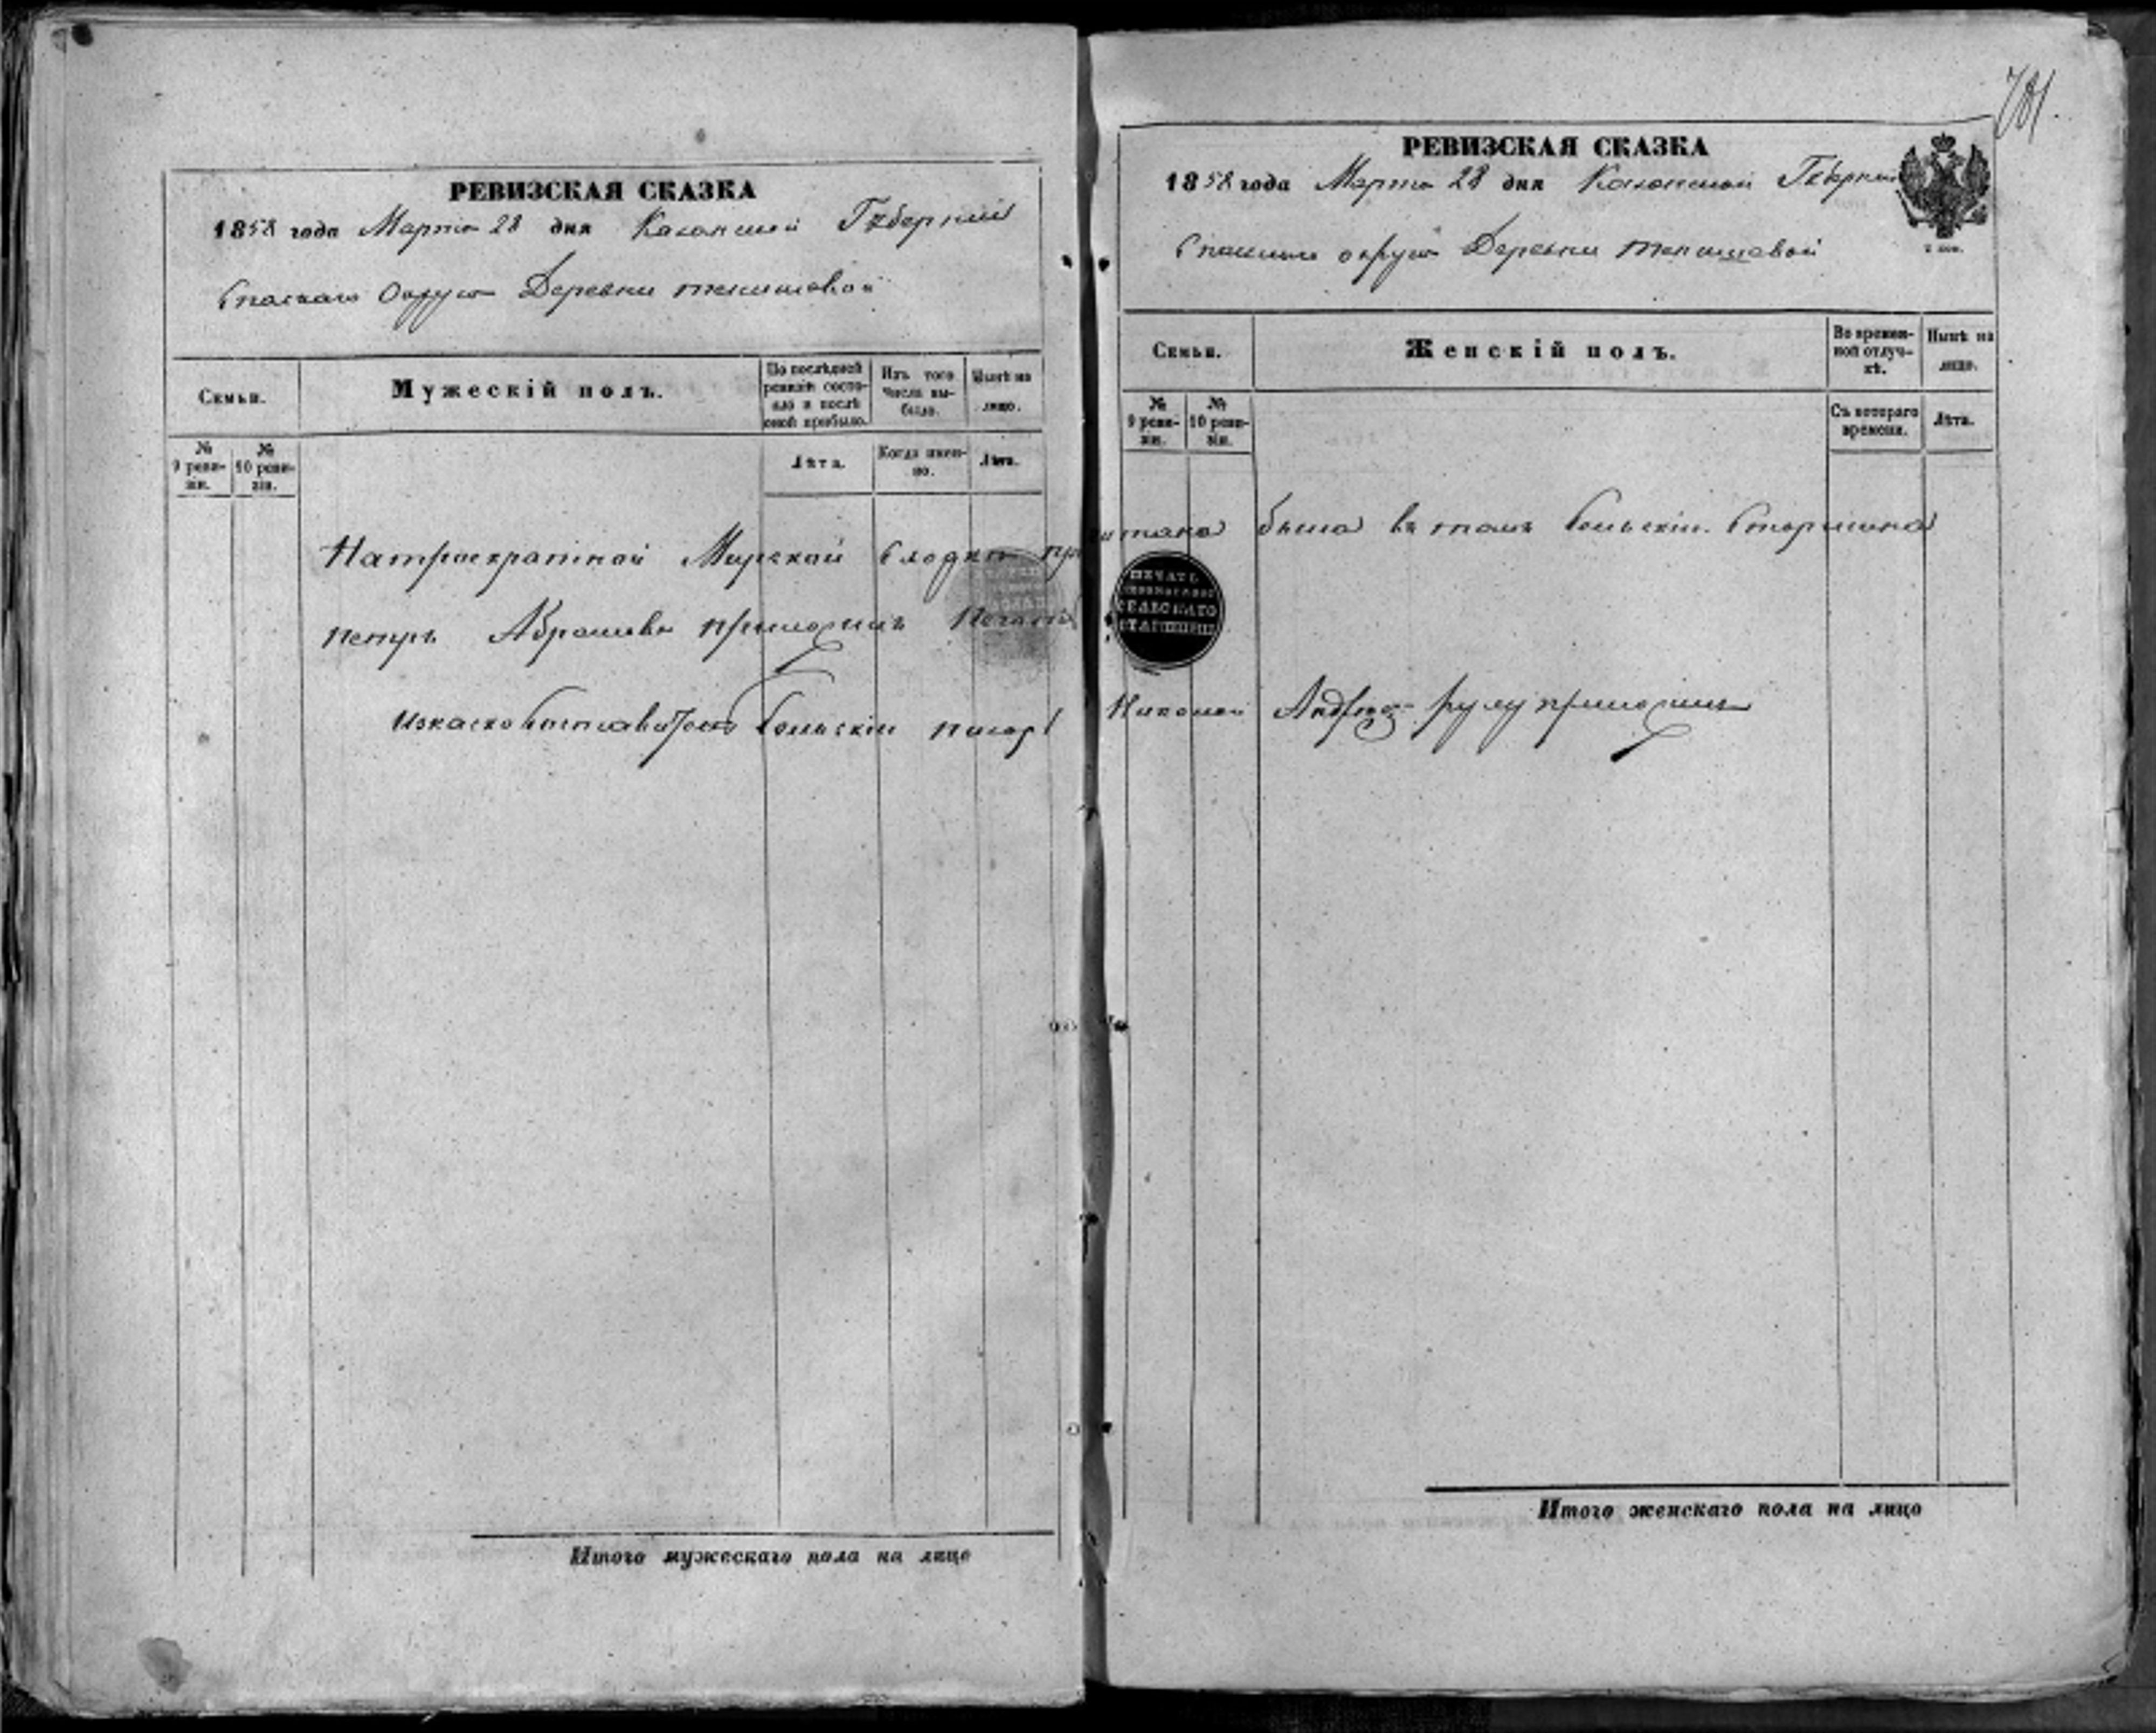 РЕВИЗСКАЯ СКАЗКА
1858 года Марта 28 дня Казанской Губернии
Спаскаго Округа Деревни
Семьи.
Мужескій полъ.
По послѣдней ревизіи состояло и послѣ оной прибыло.
Изъ того числа выбыло.
Нынѣ на лицо.
№ 9 ревизіи.
№ 10 ревизіи.
Лѣта.
Когда именно.
Лѣта.
Натроекратной Мирской Сходке
петръ приложилъ печать
Сельскій писарь
Итого мужескаго пола на лицо
781.
РЕВИЗСКАЯ СКАЗКА
1858 года Марта 28 дня Казанской Губернии
округа Деревни
2 коп.
Семьи.
Женскій полъ.
Во временной отлучкѣ.
Нынѣ на лицо.
№ 9 ревизіи.
№ 10 ревизіи.
Съ котораго времени.
Лѣта.
читана была въ томъ Сельскій Старшина
ПЕЧАТЬ
СЕЛЬСКАГО
СТАРШИНЫ
Николай руку приложилъ
Итого женскаго пола на лицо